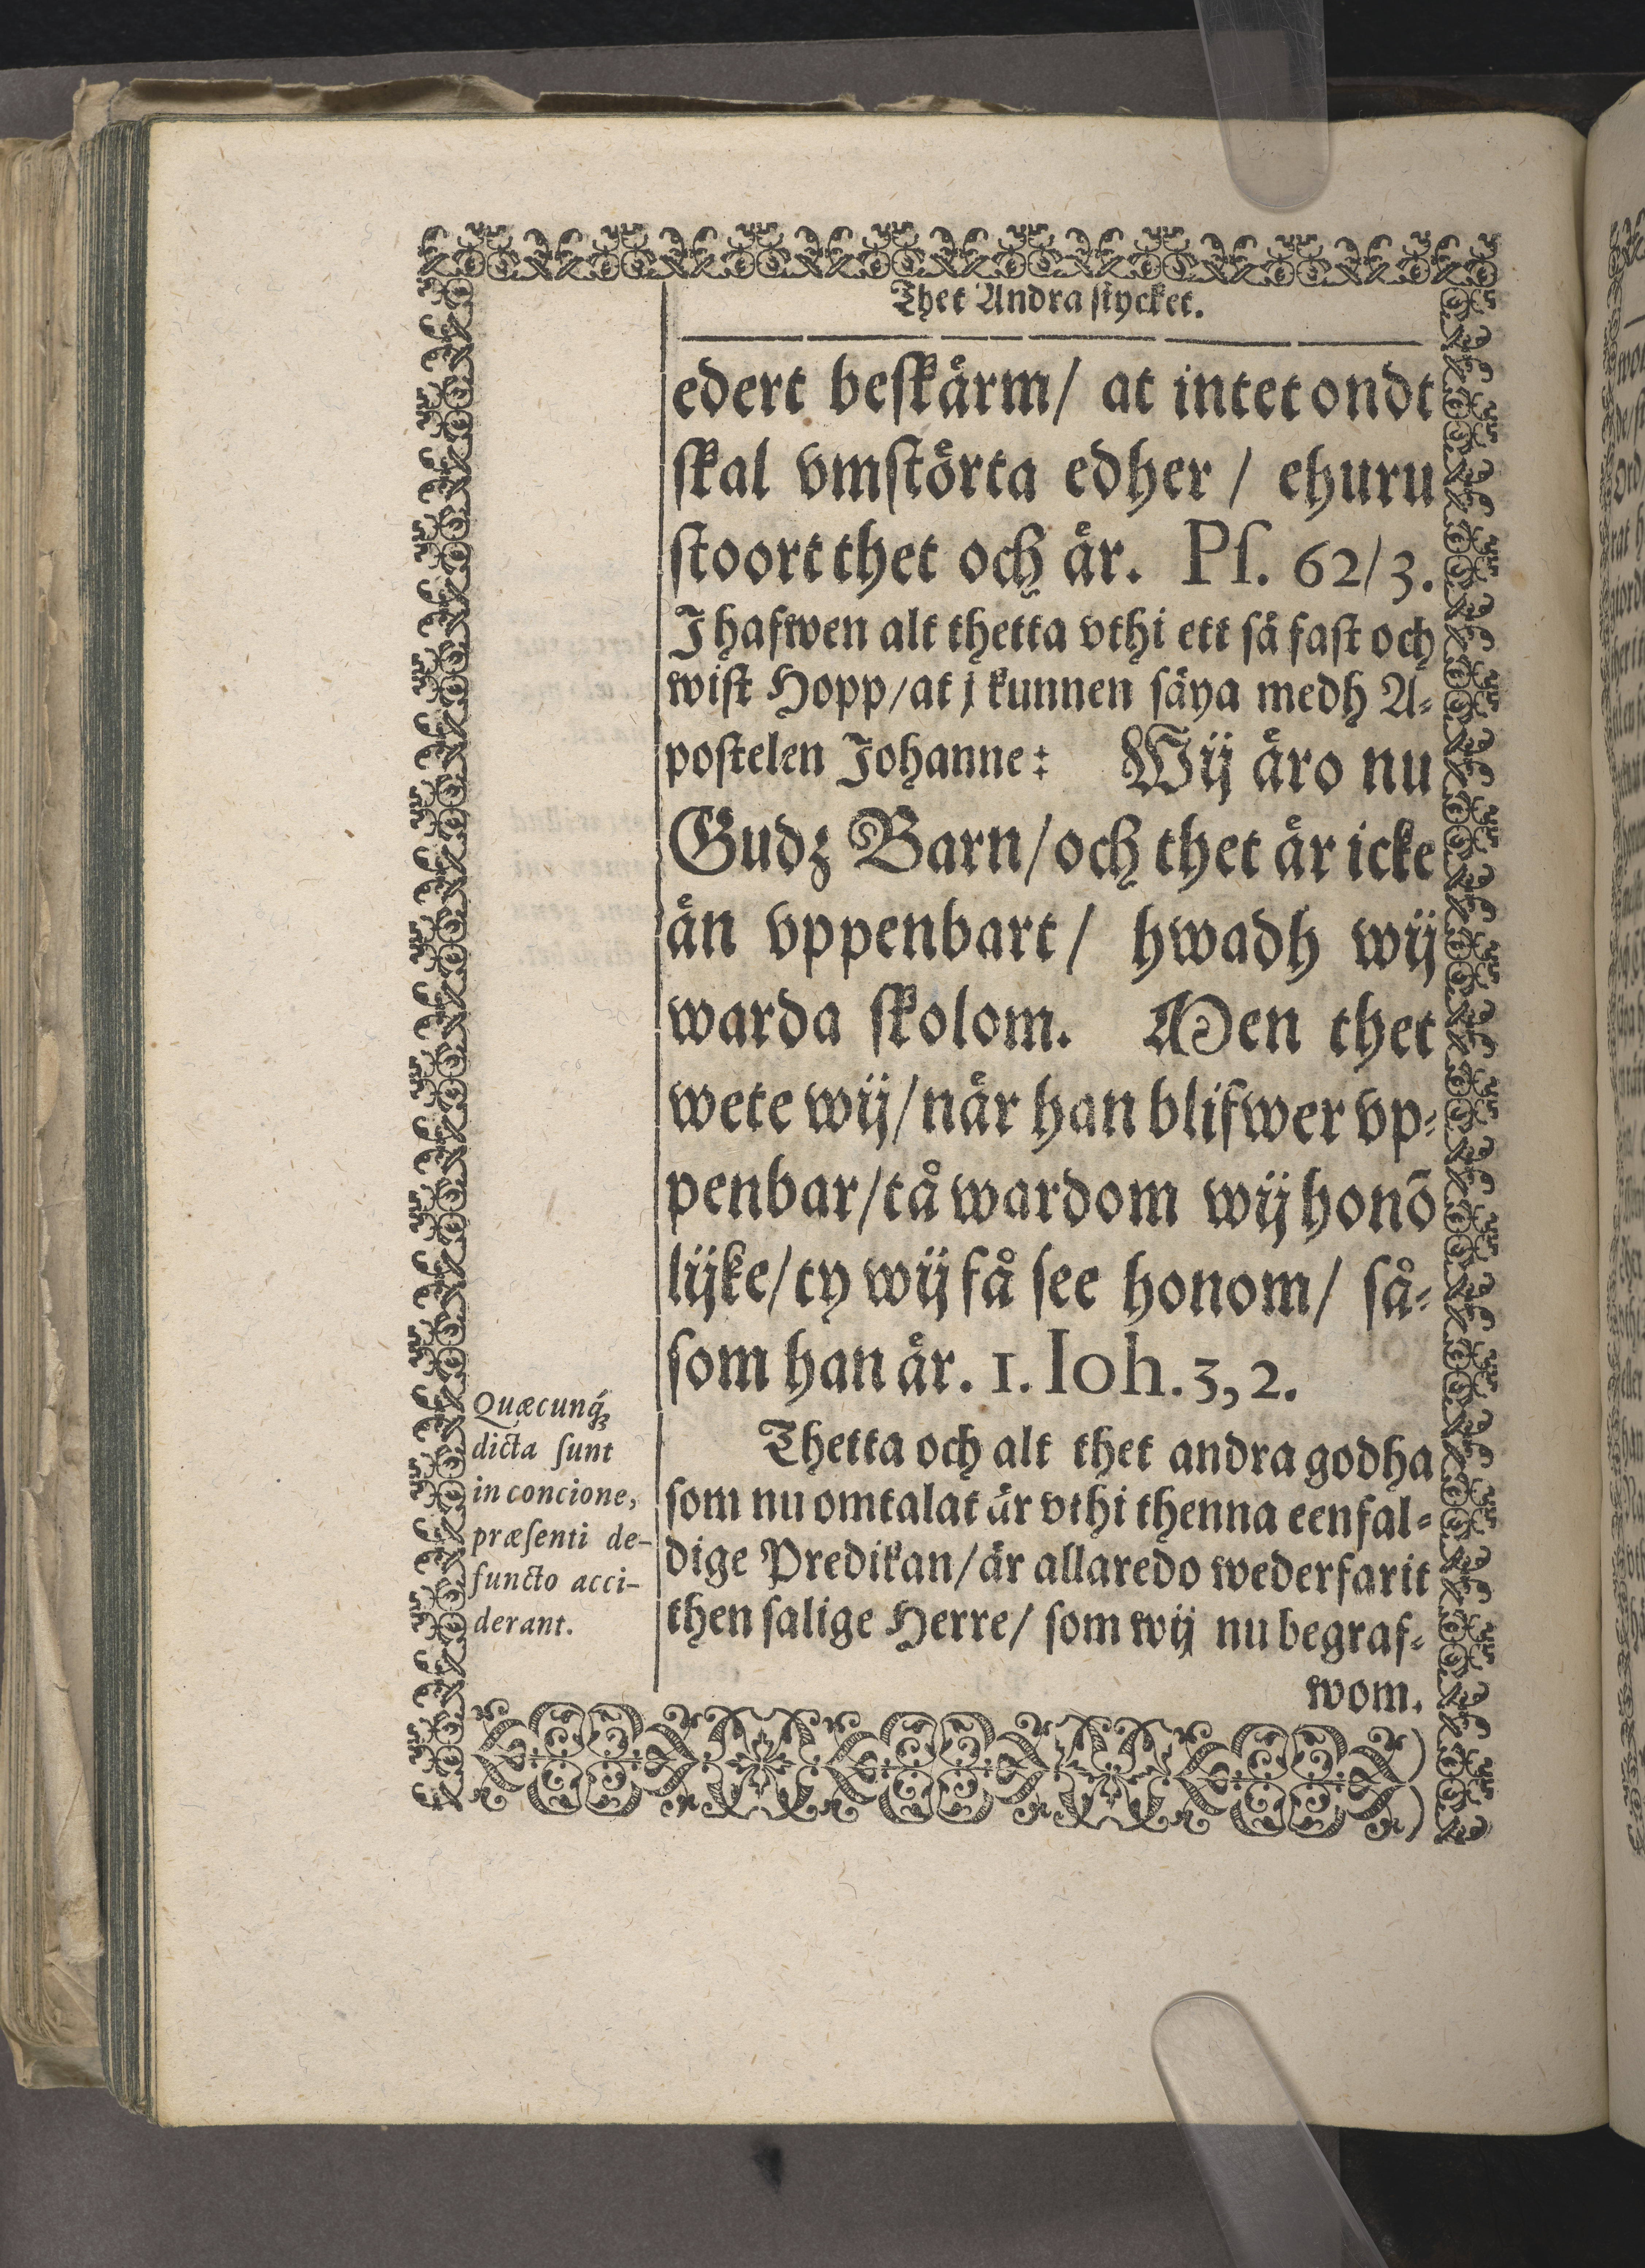 Thet Andra stycket.
edert beskärm/ at intet ondt
skal vmstörta edher / ehuru
stoort thet och är. Ps. 62/3.
J hafwen alt thetta vthi ett så fast och
wist Hopp/at j kunnen säya medh A-
postelen Johanne: Wij äro nu
Gudz Barn/och thet är icke
än vppenbart/ hwadh wij
warda skolom. Men thet
wete wij/när han blifwer vp-
penbar/tå wardom wij honō
lijke/ty wij få see honom/ så-
som han är. 1. Ioh. 3, 2.
Thetta och alt thet andra godha
som nu omtalat är vthi thenna eenfal-
dige Predikan/är allaredo wederfarit
then salige Herre/ som wij nu begraf-
wom.
Quæcunq́ꝫ
dicta sunt
in concione,
præsenti de-
functo acci-
derant.